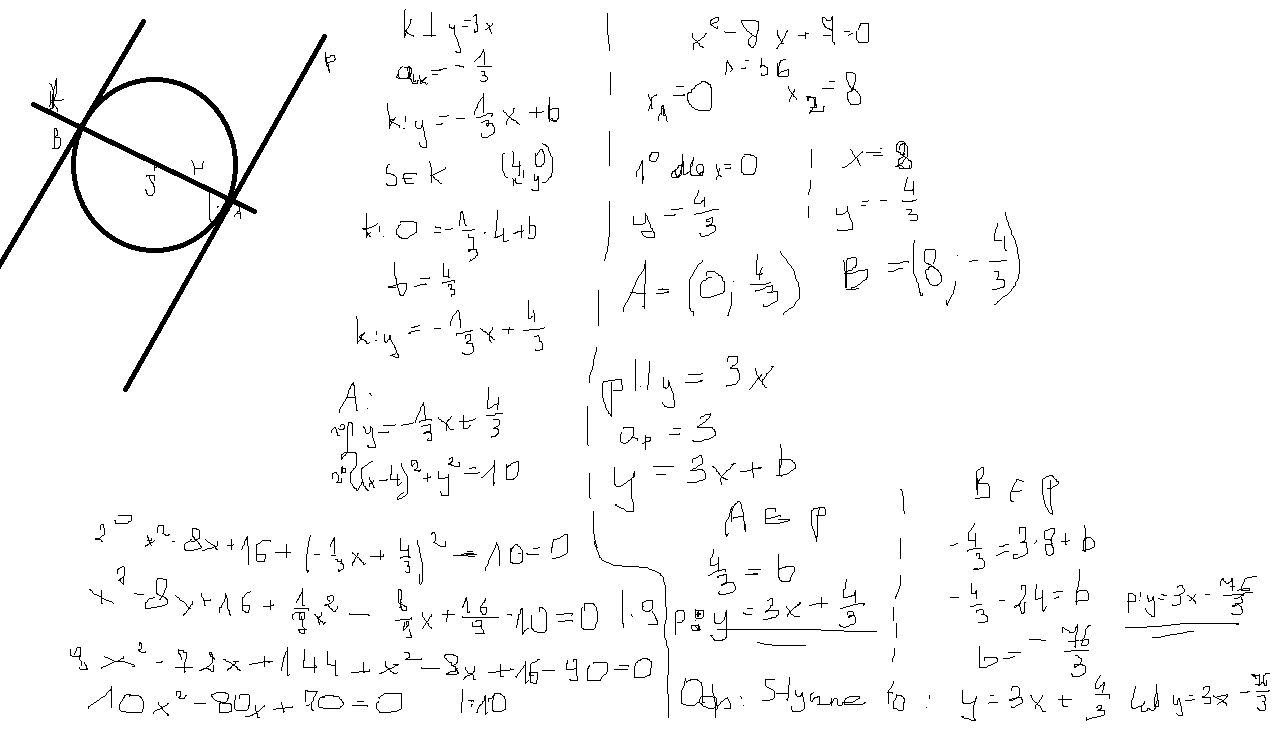 k
p
B
r
S
A
k ⊥ y=3x
aₖ = -1/3
k: y = -1/3 x + b
S∈k (4, 0)
x, y
k: 0 = -1/3 · 4 + b
b = 4/3
k: y = -1/3 x + 4/3
A:
1° y = -1/3 x + 4/3
2° (x-4)² + y² = 10
2° x² - 8x + 16 + (-1/3 x + 4/3)² - 10 = 0
x² - 8x + 16 + 1/9 x² - 8/9 x + 16/9 - 10 = 0 |·9
9x² - 72x + 144 + x² - 8x + 16 - 90 = 0
10x² - 80x + 70 = 0 |:10
x² - 8x + 7 = 0
Δ = 36
x₁ = 0 x₂ = 8
1° dla x = 0
y = 4/3
x = 8
y = -4/3
A = (0; 4/3) B = (8; -4/3)
p || y = 3x
aₚ = 3
y = 3x + b
A ∈ p
4/3 = b
p: y = 3x + 4/3
B ∈ p
-4/3 = 3·8 + b
-4/3 - 24 = b
b = -76/3
p: y = 3x - 76/3
Odp: Styczne to: y = 3x + 4/3 lub y = 3x - 76/3